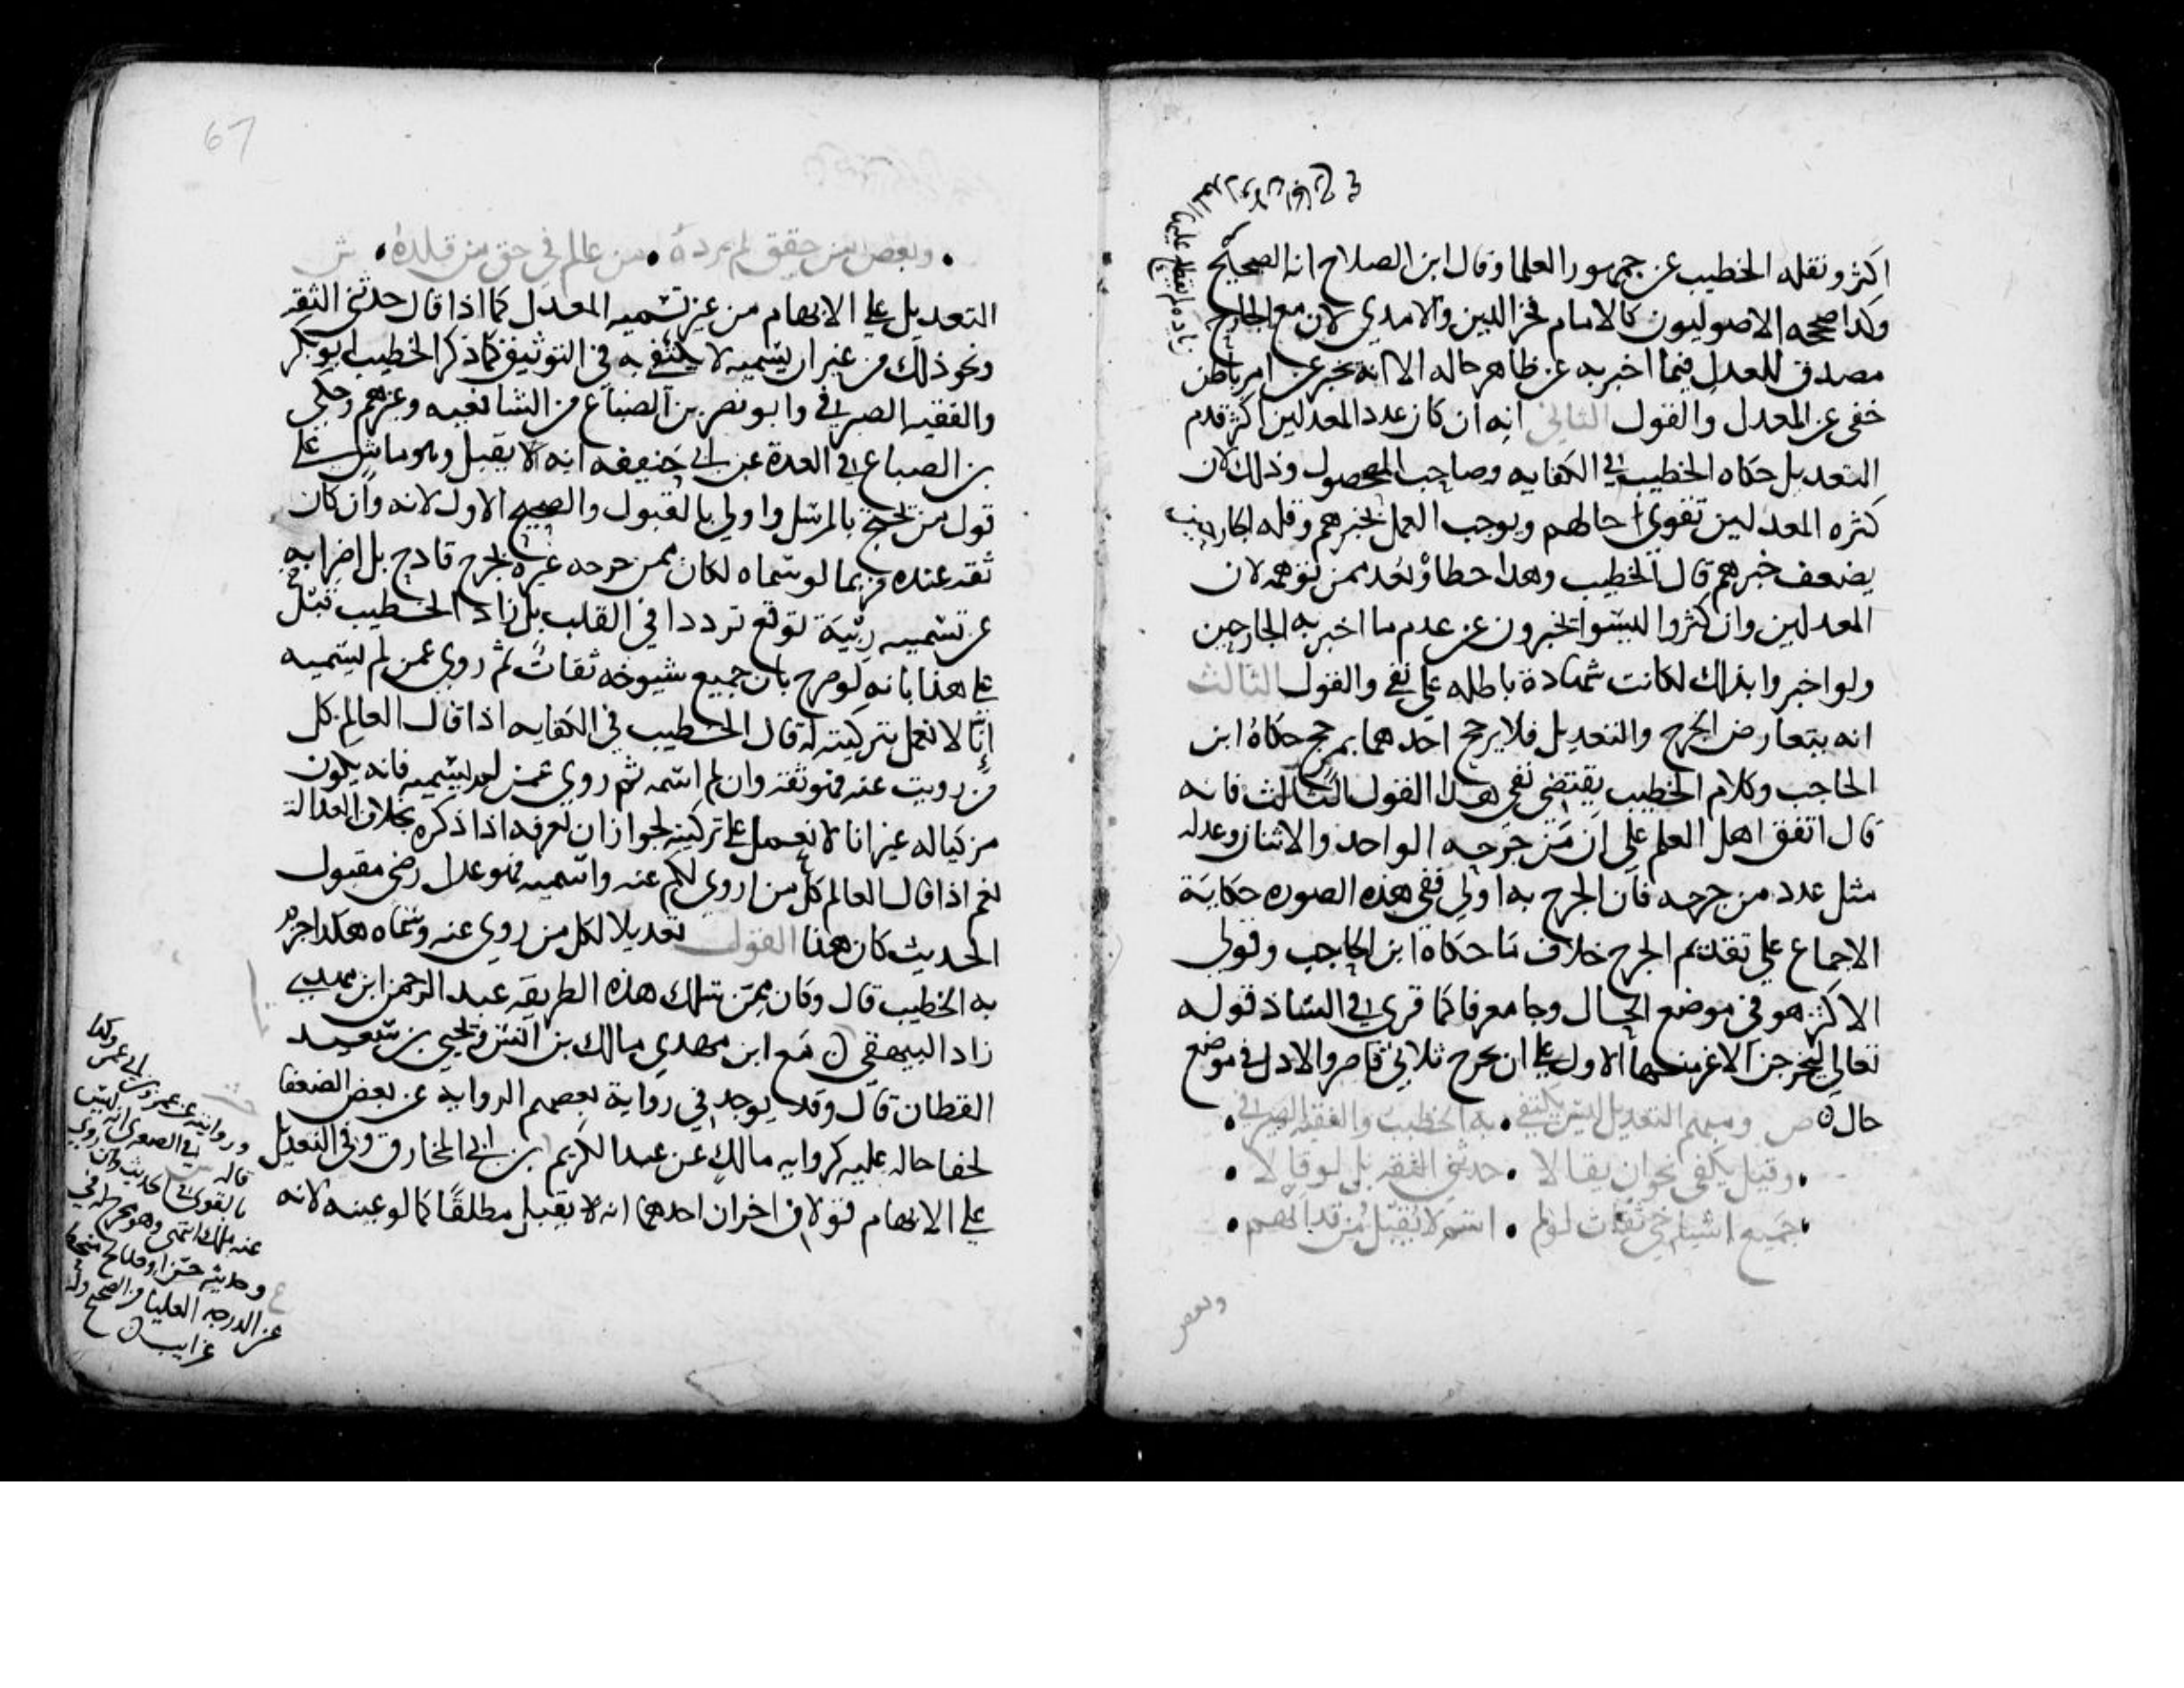 اكثر ونقله الخطيب عن جمهور العلما وقال ابن الصلاح انه الصحيح
وكذا صححه الاصوليون كالامام فخر الدين والامدي لان مع الجارح
زيادة علم لم يطلع عليها المعدل
مصدق للمعدل فيما اخبر به عن ظاهر حاله الا انه يخبر عن امر باطن
خفى عن المعدل والقول الثاني انه ان كان عدد المعدلين اكثر قدم
التعديل حكاه الخطيب في الكفايه وصاحب المحصول وذلك لان
كثره المعدلين تقوي حالهم ويوجب العمل بخبرهم وقله الجارحين
يضعف خبرهم قال الخطيب وهذا خطا وبعد ممن توهمه لان
المعدلين وان كثروا ليسوا يخبرون عن عدم ما اخبر به الجارحين
ولو اخبروا بذلك لكانت شهادة باطله على نفي والقول الثالث
انه يتعارض الجرح والتعديل فلا يرجح احدهما بمرجح حكاه ابن
الحاجب وكلام الخطيب يقتضى نفي هذا القول الثالث فانه
قال اتفق اهل العلم على ان من جرحه الواحد والاثنان وعدله
مثل عدد من جرحه فان الجرح به اولى ففي هذه الصوره حكاية
الاجماع على تقديم الجرح خلاف ما حكاه ابن الحاجب وقولى
الاكثر هو في موضع الحال وجا معرفا كما قرى في الشاذ قوله
تعالى ليخرجن الاعز منها الاول على ان يخرج ثلاثي قاصر والاذل في موضع
حال ص ومبهم التعديل ليس يكتفي • به الخطيب والفقيه الصيرفي •
• وقيل يكفى نحو ان يقالا • حدثني الثقة بل لو قالا •
• جميع اشياخي ثقات لو لم • اسم لا يقبل من قد ابهم •
وبعض
67
• وبعض من حقق لم يرده • من عالم في حق من قلده • ش
التعديل على الابهام من غير تسميه المعدل كما اذا قال حدثني الثقه
ونحو ذلك من غير ان يسميه لا يكتفى به في التوثيق كما ذكر الخطيب ابو بكر
والفقيه الصيرفي وابو نصر بن الصباغ من الشافعيه وغيرهم وحكى
بن الصباغ في العدة عن ابي حنيفه انه يقبل وهو ماش على
قول من يحتج بالمرسل واولى بالقبول والصحيح الاول لانه وان كان
ثقه عنده فربما لو سماه لكان ممن جرحه غيره بجرح قادح بل اضرابه
عن تسميه ريبة توقع ترددا في القلب بل زاد الخطيب
على هذا بانه لو صرح بان جميع شيوخه ثقات ثم روى عمن لم يسميه
انا لا نعمل بتزكيته له قال الخطيب في الكفايه اذا قال العالم كل
من رويت عنه فهو ثقه وان لم اسمه ثم روى عمن لم يسميه فانه يكون
مزكيا له غير انا لا نعمل على تزكيته لجواز ان نعرفه اذا ذكره بخلاف العدالة
نعم اذا قال العالم كل من اروي لكم عنه واسميه فهو عدل رضى مقبول
الحديث كان هذا القول تعديلا لكل من روى عنه وسماه هكذا جزم
به الخطيب قال وكان ممن سلك هذه الطريقه عبد الرحمن ابن مهدي
زاد البيهقي مع ابن مهدي مالك بن انس ويحيى بن سعيد
القطان قال وقد يوجد في رواية بعضهم الروايه عن بعض الضعفا
لخفا حاله عليه كروايه مالك عن عبد الكريم بن ابي المخارق وفي التعديل
على الابهام قولان اخران احدهما انه يقبل مطلقا كما لو عينه لانه
وروايته عن عمرو بن ابي عمرو